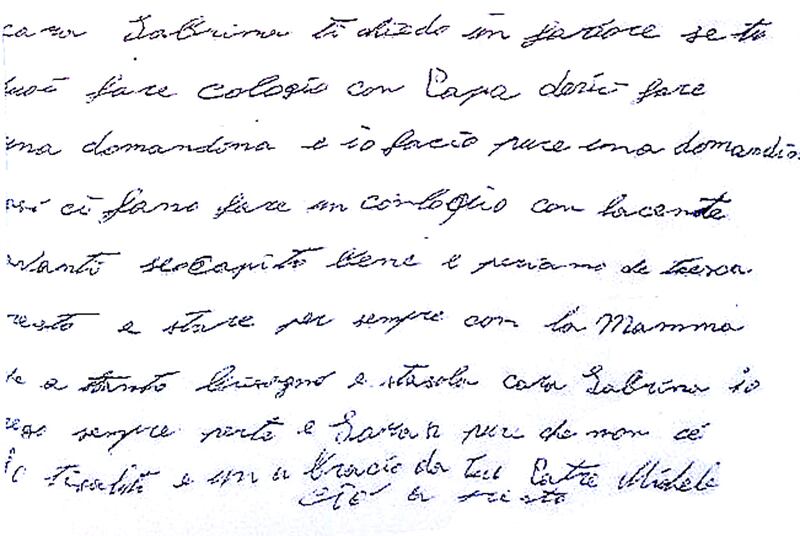 cara Sabrina ti chiedo un favore se tu
puoi fare cologio con Papa devi fare
una domandina e io facio pure una domandin
così ci fano fare un conloquio con lacente
avanti seocapito bene e periamo de
resto e stare per sempre con la Mamma
te a tanto bisogno e stasola cara Sabrina io
sempre perte e Sarah pure che non cé
tisaluto e un a bracio da tuo Patre Michele
ciò a presto